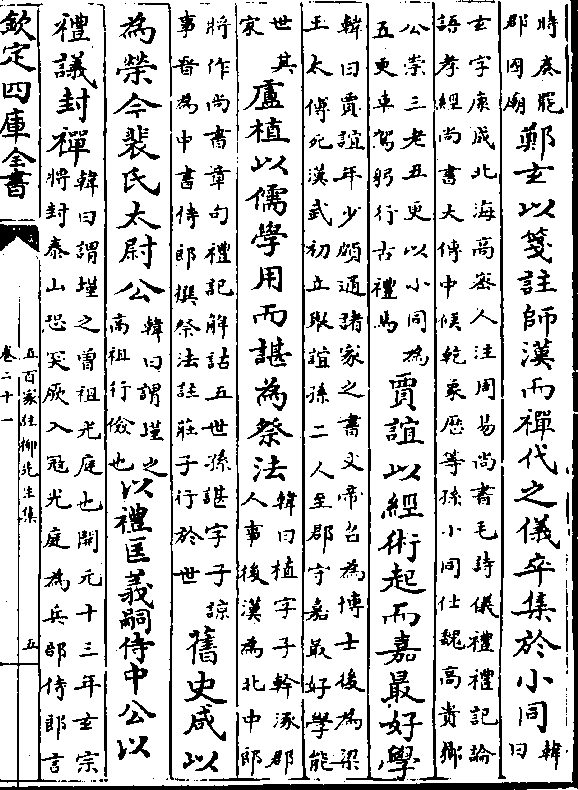 時廢罷
郡國廟
鄭玄以箋註師漢而禪代之儀卒集於小同
韓
曰
玄字康成北海高密人注周易尚書毛詩儀禮禮記論
語孝經尚書大傳中候乾象歷等孫小同仕魏高貴鄉
公崇三老五更以小同為
五更車駕躬行古禮焉
賈誼以經術起而嘉最好學
韓曰賈誼年少頗通諸家之書文帝召為博士後為梁
王太傅死漢武初立舉誼孫二人至郡守嘉最好學能
世其
家
盧植以儒學用而諶為祭法
韓曰植字子幹涿郡
人事後漢為北中郎
將作尚書章句禮記解詁五世孫諶字子諒
事晉為中書侍郎撰祭法註莊子行於世
舊史咸以
為榮今裴氏太尉公
韓曰謂墐之
高祖行儉也
以禮匡義嗣侍中公以
禮議封禪
韓曰謂墐之曾祖光庭也開元十三年玄宗
將封泰山恐突厥入冦光庭為兵部侍郎言
欽定四庫全書
五百家註柳先生集
卷二十一
五